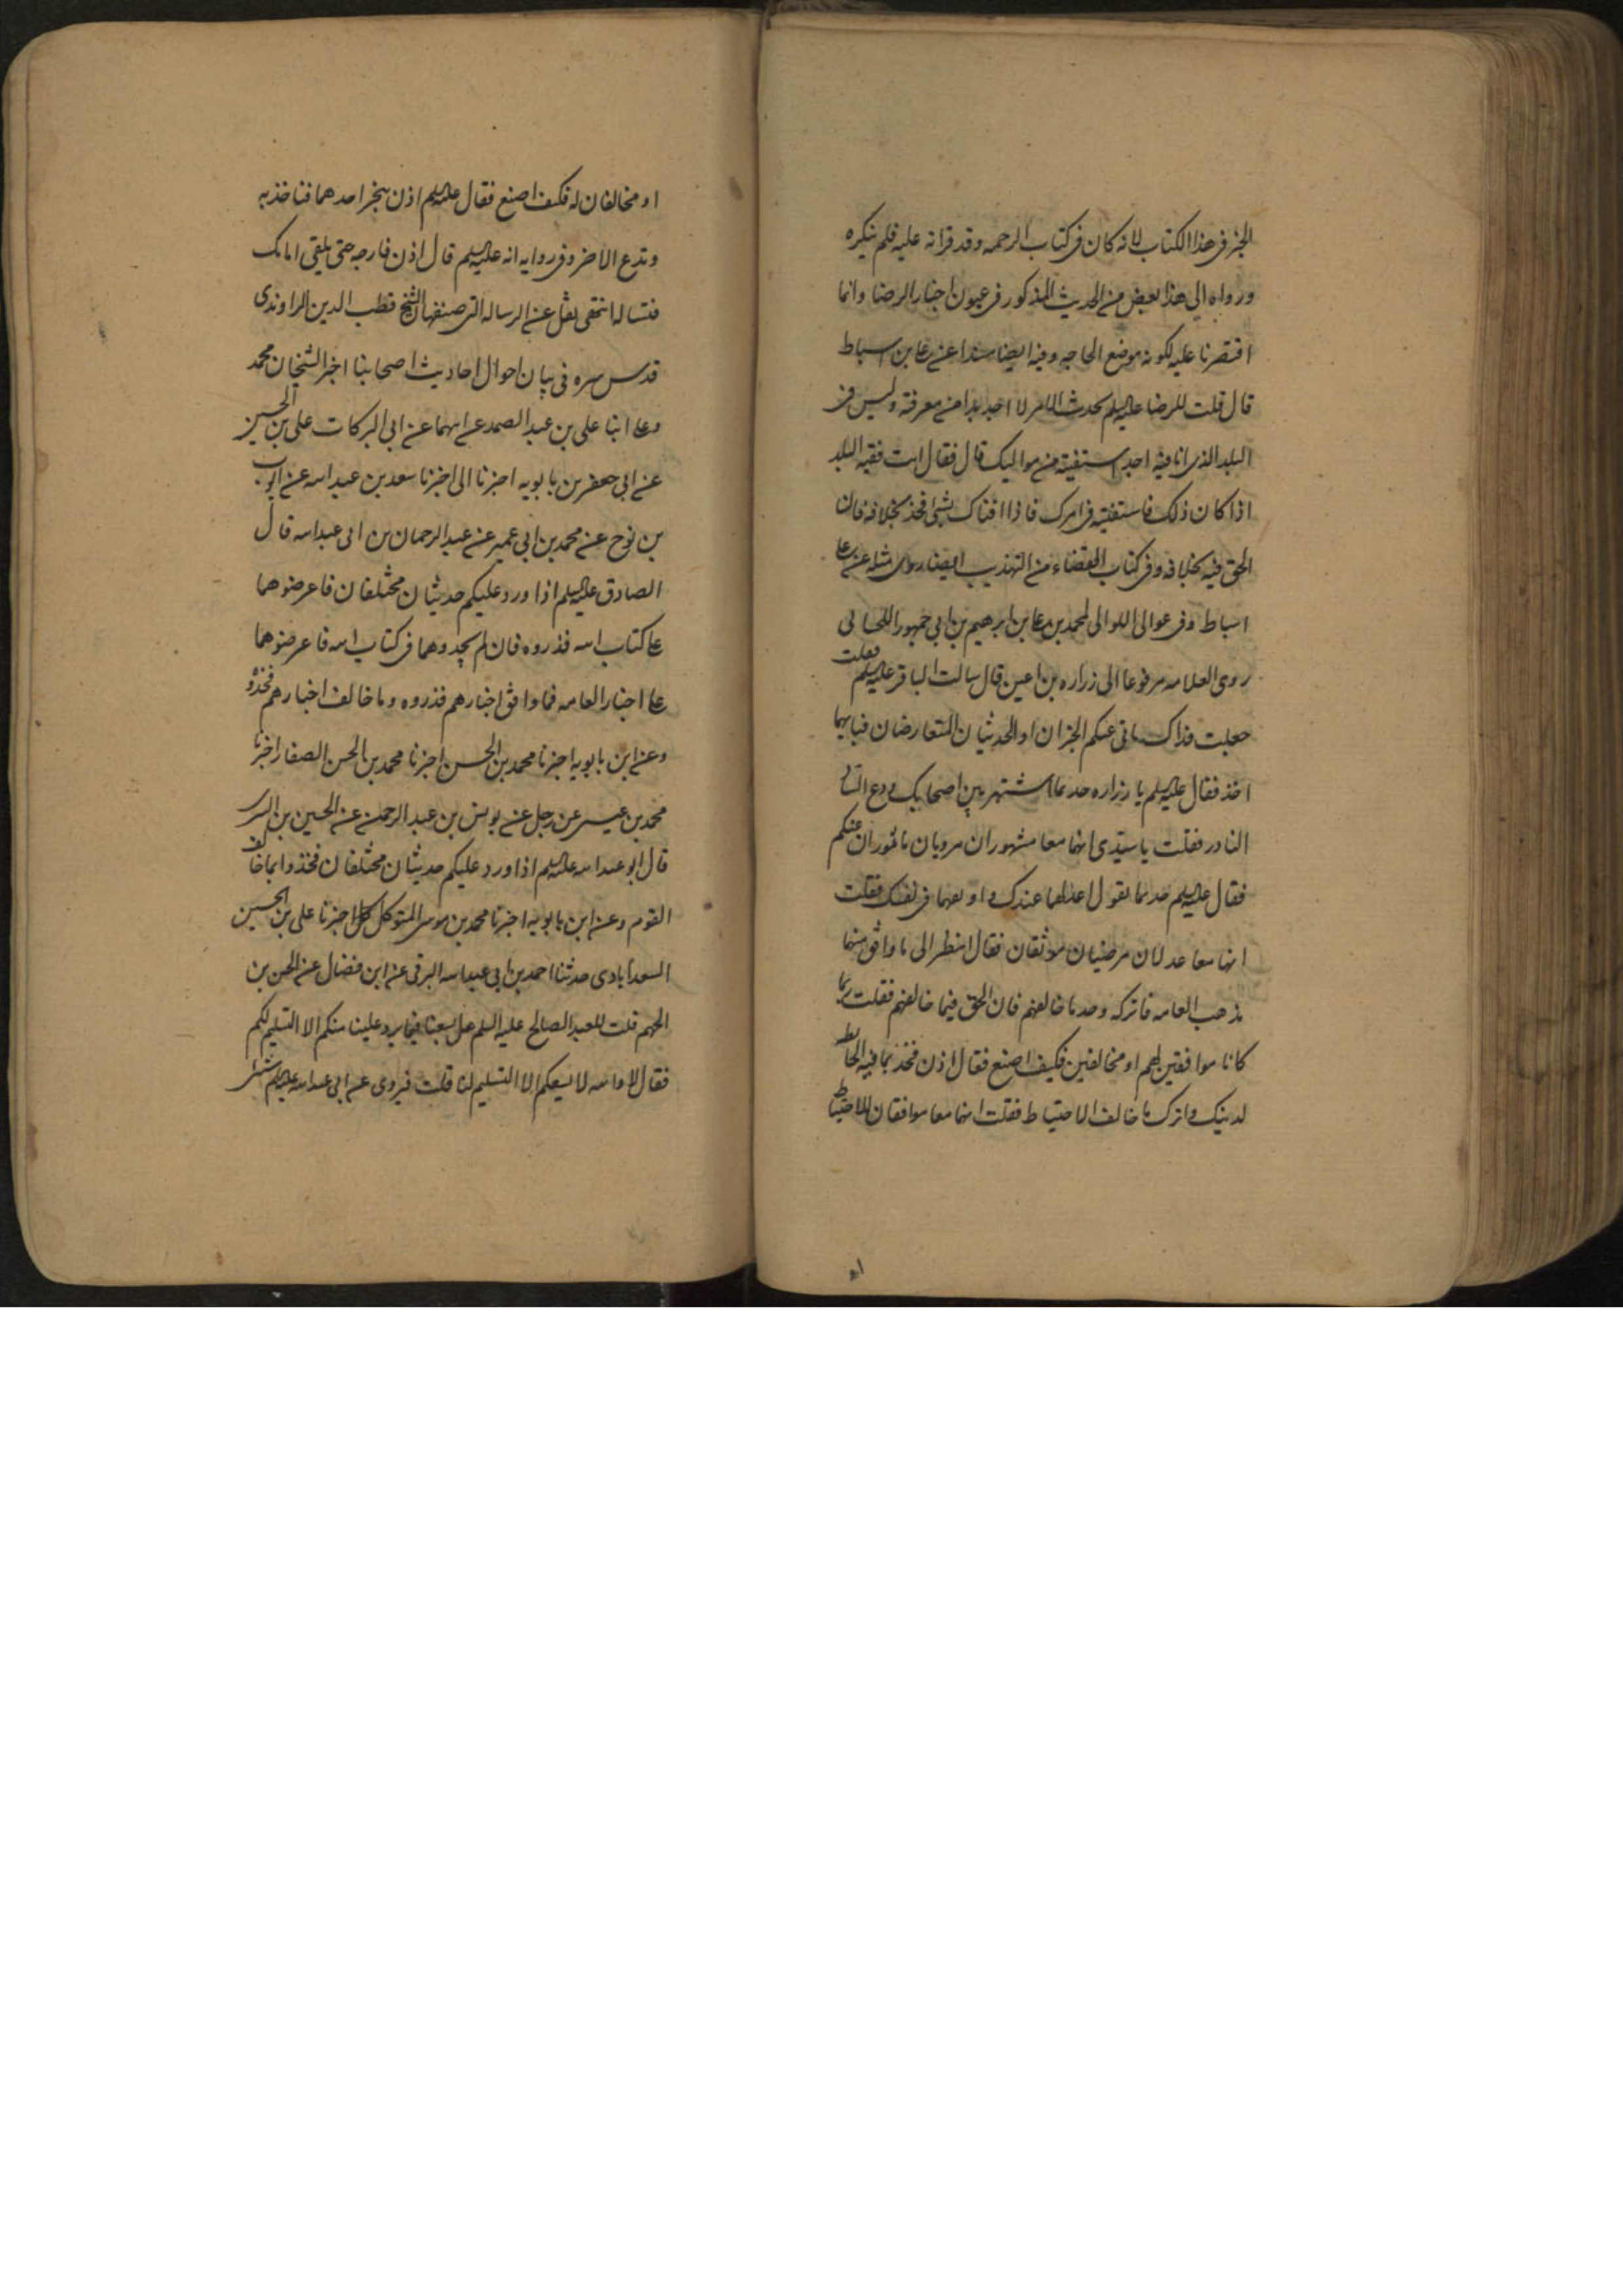 الخبر في هذا الكتاب لانه كان في كتاب الرحمه و قد قراته عليه فلم ينكره
ورواه لي هذا بعض من الحديث المذكور في عيون اخبار الرضا وانما
اقتصرنا عليه لكونه موضع الحاجه وفيه ايضا مسندا عن علي بن اسباط
قال قلت للرضا عليه السلم يحدث الامر لا اجد بدا من معرفته و ليس في
البلد الذي انا فيه احد استفتيه من مواليك قال فقال ايت فقيه البلد
اذا كان ذلك فاستفتيه في امرك فاذا افتاك بشئ فخذ بخلافه فان
الحق فيه بخلافه وفي كتاب القضاء من التهذيب ايضا روى مثله عن علي
اسباط وفي عوالي اللوالي لمحمد بن علي بن ابرهيم بن ابي جمهور اللحساني
روى العلامه مرفوعا الى زراره بن اعين قال سالت الباقر عليه السلم فقلت
جعلت فداك ياتي عنكم الخبران او الحديثان المتعارضان فبايهما
اخذ فقال عليه السلم يا زراره خذ بما اشتهر بين اصحابك ودع الشاذ
النادر فقلت يا سيدي انهما معا مشهوران مرويان ماثوران عنكم
فقال عليه السلم خذ بما يقول اعدلهما عندك و اوثقهما في نفسك فقلت
انهما معا عدلان مرضيان موثقان فقال انظر الى ما وافق منهما
مذهب العامه فاتركه وخذ ما خالفهم فان الحق فيما خالفهم فقلت ربما
كانا موافقين لهم او مخالفين فكيف اصنع فقال اذن فخذ بما فيه الحائطه
لدينك واترك ما خالف الاحتياط فقلت انهما معا موافقان للاحتياط
او
او مخالفان له فكيف اصنع فقال عليه السلم اذن بخبر احدهما فتاخذ به
وتدع الاخر وفي روايه انه عليه السلم قال اذن فارجه حتى يلقى امامك
فتساله انتهى نقل عن الرساله التي صنفها الشيخ قطب الدين الراوندي
قدس سره في بيان احوال احاديث اصحابنا اخبر الشيخان محمد
وعلي ابنا علي بن عبد الصمد عن ابيهما عن ابي البركات علي بن الحسين
عن ابي جعفر بن بابويه اخبرنا ابي اخبرنا سعد بن عبد الله عن ايوب
بن نوح عن محمد بن ابي عمير عن عبد الرحمان بن ابي عبد الله قال
الصادق عليه السلم اذا ورد عليكم حديثان مختلفان فاعرضوهما
على كتاب الله فذروه فان لم يجدوهما في كتاب الله فاعرضوهما
على اخبار العامه فما وافق اخبارهم فذروه وما خالف اخبارهم فخذوه
وعن ابن بابويه اخبرنا محمد بن الحسن اخبرنا محمد بن الحسن الصفار اخبرنا
محمد بن عيسى عن رجل عن يونس بن عبد الرحمن عن الحسين بن السري
قال ابو عبد الله عليه السلم اذا ورد عليكم حديثان مختلفان فخذوا بما خالف
القوم وعن ابن بابويه اخبرنا محمد بن موسى المتوكل اخبرنا علي بن الحسين
السعدابادي حدثنا احمد بن ابي عبد الله البرقي عن ابن فضال عن الحسن بن
الجهم قلت للعبد الصالح عليه السلم هل يسعنا فيما يرد علينا منكم الا التسليم لكم
فقال لا والله لا يسعكم الا التسليم لنا قلت فيروى عن ابي عبد الله عليه السلم شئ